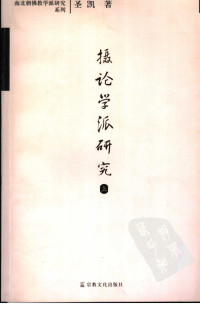 南北朝佛教学派研究
系列
圣凯 著
摄论学派研究
上
宗教文化出版社